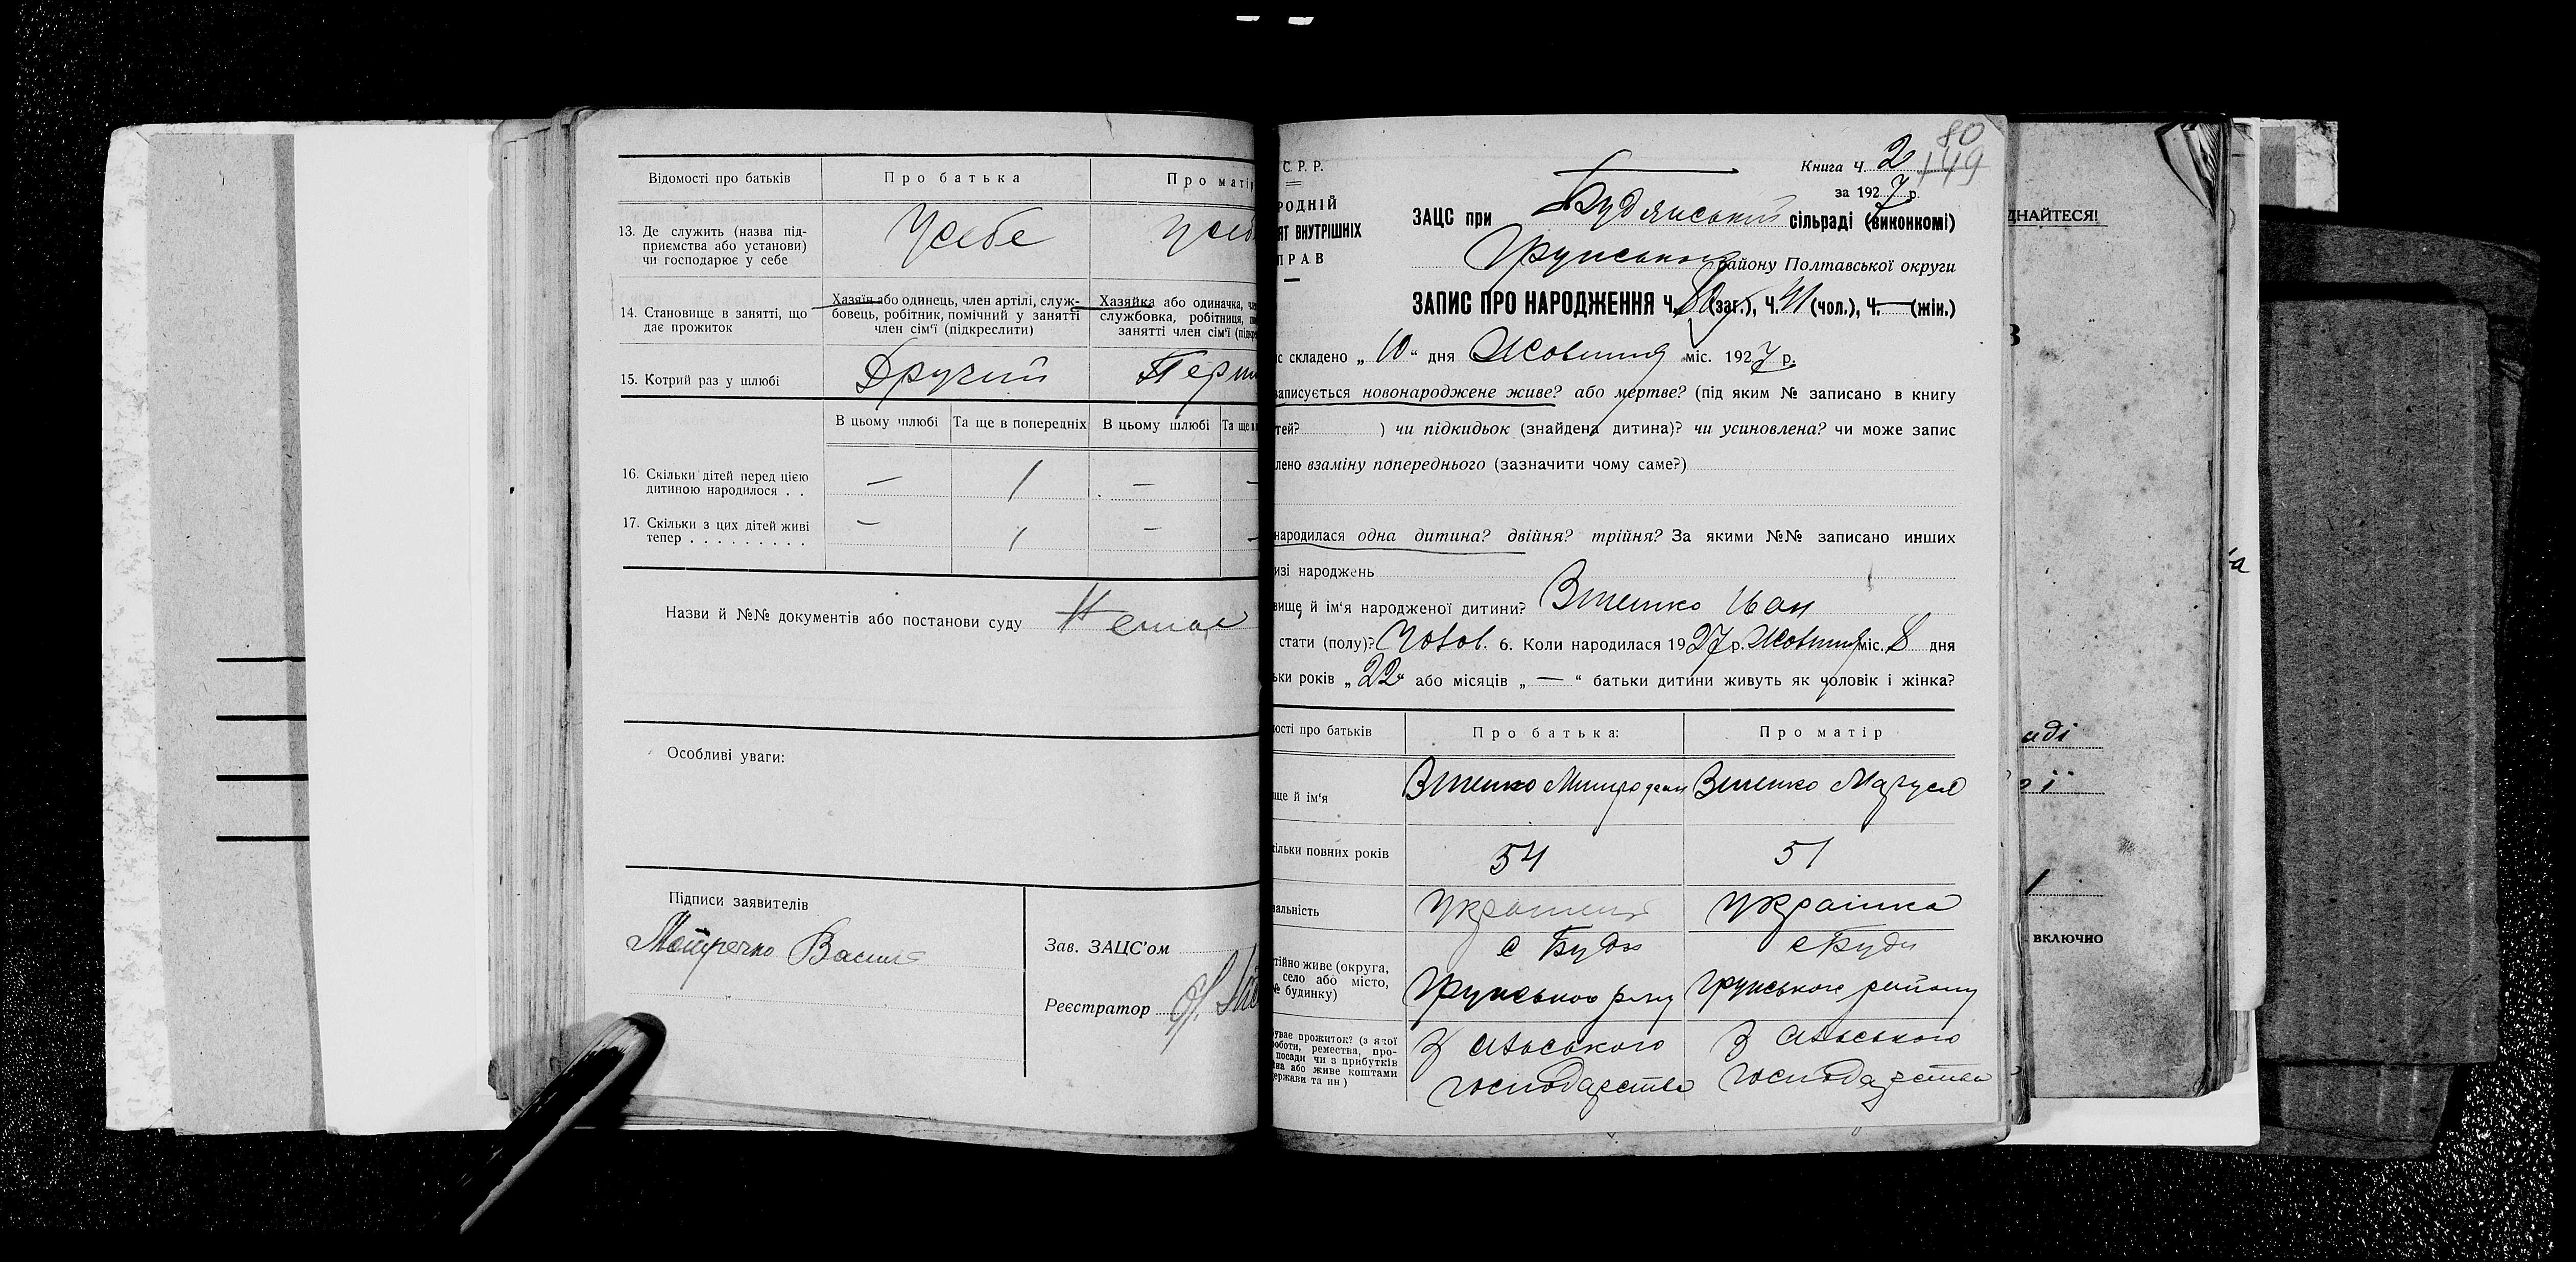 Відомості про батьків
Про батька
Про матір
13. Де служить (назва під-
приємства або установи)
чи господарює у себе
Усебе
Усеб
14. Становище в занятті, що
дає прожиток
Хазяїн або одинець, член артілі, служ-
бовець, робітник, помічний у занятті
член сім'ї (підкреслити)
Хазяйка або одиначка,
службовка, робітниця,
занятті член сім'ї
15. Котрий раз у шлюбі
Другий
Перш
В цьому шлюбі
Та ще в попередніх
В цьому шлюбі
Та ще
16. Скільки дітей перед цією
дитиною народилося . .
— 1 — —
17. Скільки з цих дітей живі
тепер . . . . . . . . .
— 1 — —
Назви й №№ документів або постанови суду Немає
Особливі уваги:
Підписи заявителів
Василь
Зав. ЗАЦС'ом
Реєстратор
80
149
С. Р. Р.
РОДНІЙ
ЯТ ВНУТРІШНІХ
ПРАВ
Книга Ч. 2
за 1927 р.
ЗАЦС при Будянській сільраді (виконкомі)
Грунського району Полтавської округи
ЗАПИС ПРО НАРОДЖЕННЯ Ч. 80 (заг.), Ч. 41 (чол.), Ч. — (жін.)
с складено „ 10 “ дня Жовтня міс. 1927 р.
записується новонароджене живе? або мертве? (під яким № записано в книгу
тей? ) чи підкидьок (знайдена дитина)? чи усиновлена? чи може запис
лено взаміну попереднього (зазначити чому саме?)
народилася одна дитина? двійня? трійня? За якими №№ записано инших
изі народжень
вище й ім'я народженої дитини? Іван
стати (полу)? Чолов. 6. Коли народилася 1927 р. Жовтня міс. 8 дня
ьки років „ 22 “ або місяців „ — “ батьки дитини живуть як чоловік і жінка?
ості про батьків
Про батька:
Про матір
ще й ім'я
Маруся
ільки повних років
54
51
альність
Українець
Українка
тійно живе (округа,
село або місто,
№ будинку)
с Буди
Грунського р-ну
с Буди
Грунського району
уває прожиток? (з якої
оботи, ремества, про-
посади чи з прибутків
ва або живе коштами
ержави та ин)
З сільського
господарства
З сільського
господарства
ДНАЙТЕСЯ!
аді
ої
включно